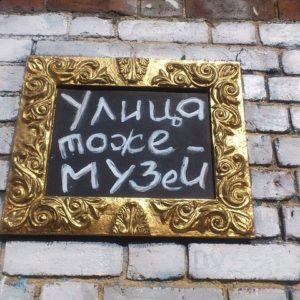 улица
тоже -
музей